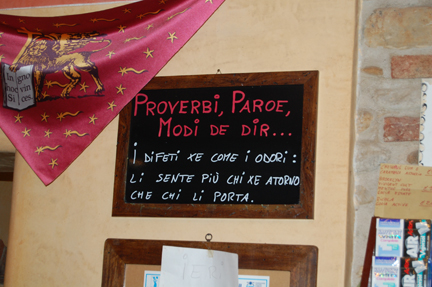 PROVERBI, PAROE,
MODI DE DIR...
I DIFETI XE COME I ODORI:
LI SENTE PIÙ CHI XE ATORNO
CHE CHI LI PORTA.